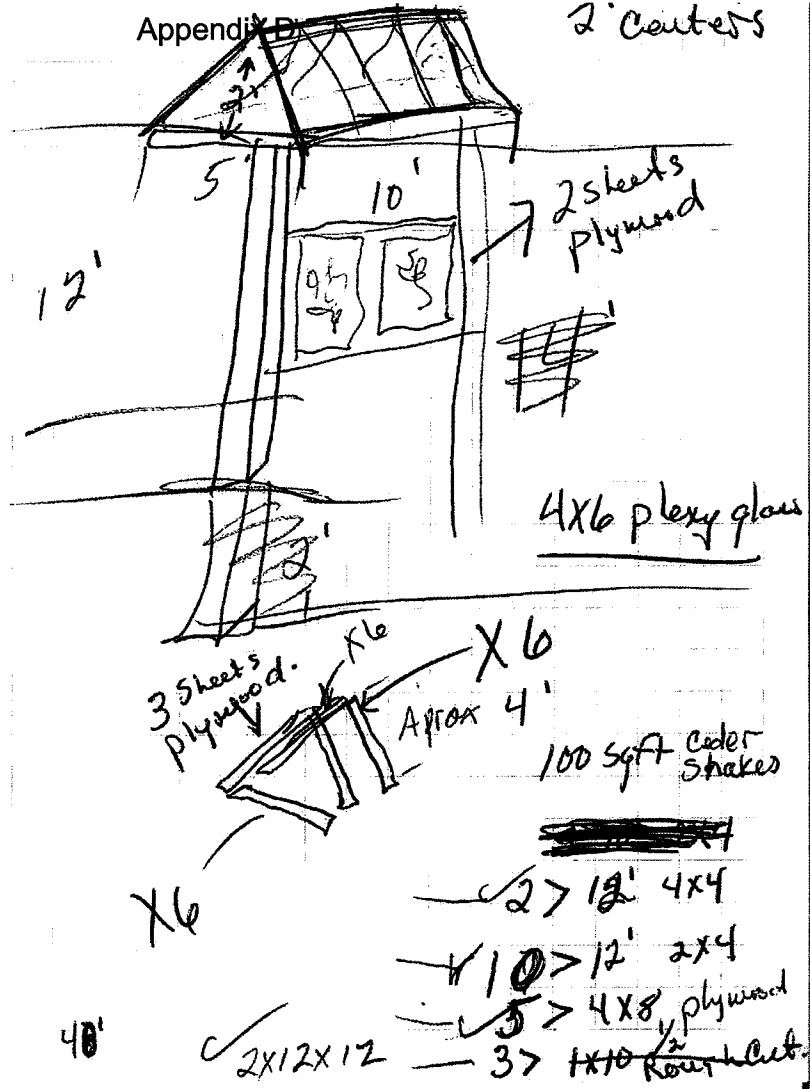 Appendix D
2' Centers
2'
5'
10'
2 Sheets
plywood
12'
2'
4X6 plexy glass
X6
X6
3 Sheets
plywood.
Aprox 4'
100 sqft Ceder
Shakes
X6
2 > 12' 4x4
10 > 12' 2x4
5 > 4X8 plywood
1/2
2X12X12
3 > 1x10 Rough Cut.